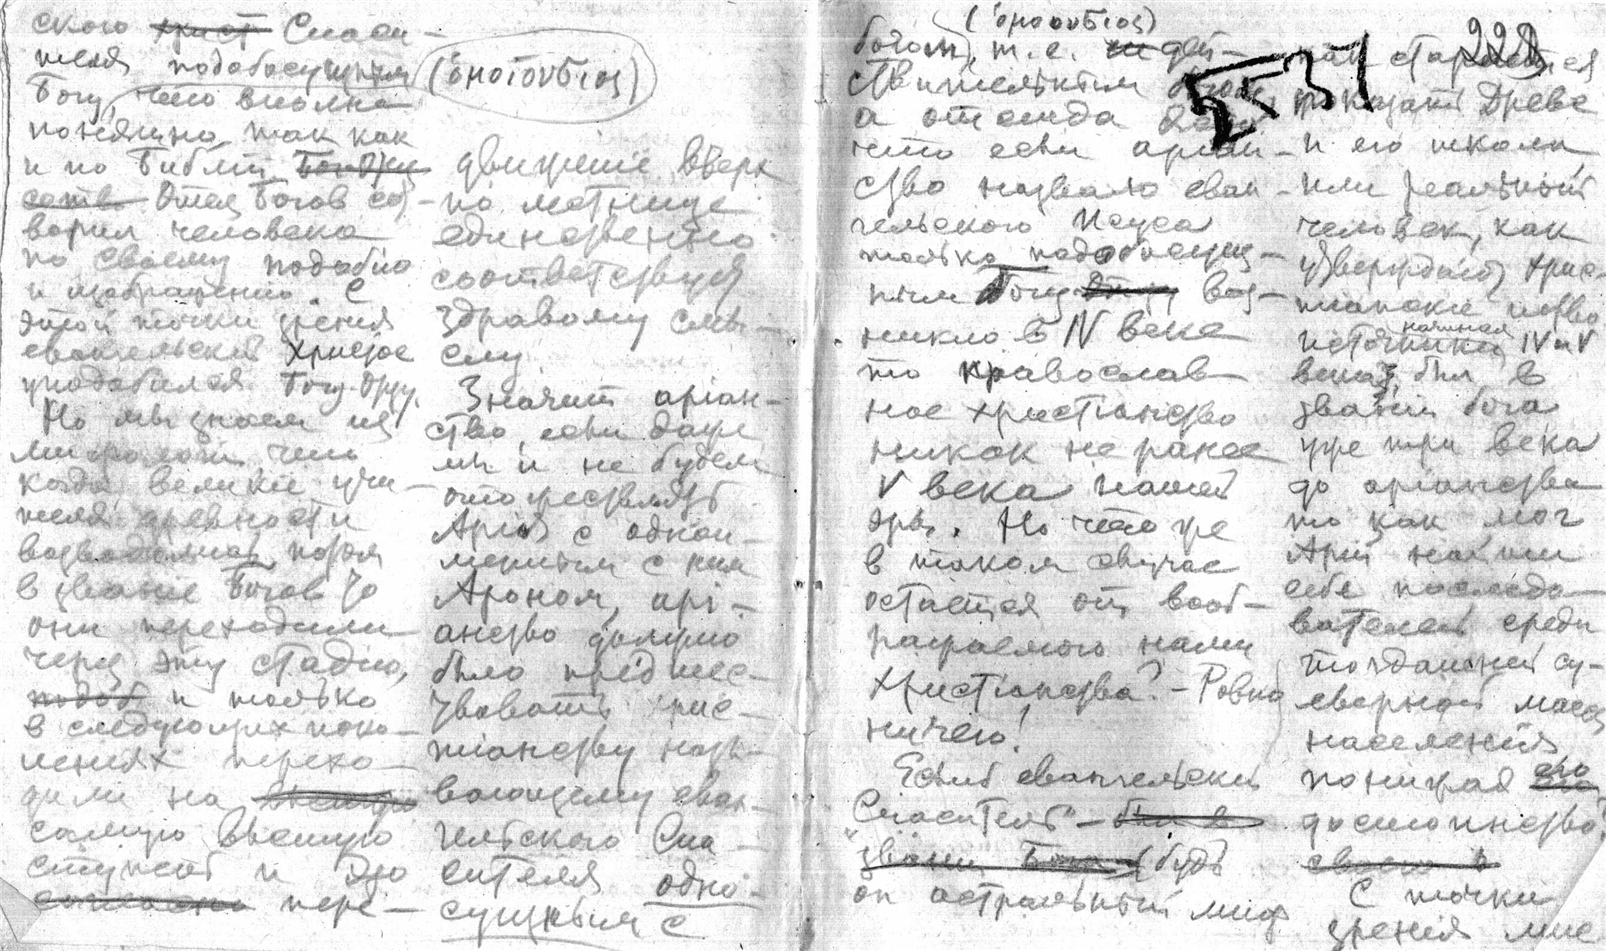 ского христ Спаси-
теля подобосущным
Богу, что вполне
понятно, так как
и по Библии
Отец Богов сот-
ворил человека
по своему подобию
и изображению. С
этой точки зрения
евангельский Христос
уподобился Богу-Отцу.
Но мы знаем из
мифологии, чем
когда великие учи-
теля древности
возводились потом
в звание Богов, то
они переходили
через эту стадию,
подоб и только
в следующих поко-
лениях перехо-
дили на
самую высшую
ступень и это
пере-
(ὁμοιούσιος)
движение вверх
по лестнице
единственно
соответствует
здравому смы-
слу.
Значит аріан-
ство, если даже
мы и не будем
отожествлять
Арія с одной-
менным с ним
Ароном, арі-
анство должно
было предшес-
твовать хрис-
тіанству назы-
вающему еван-
гельского Спа-
сителя одно-
сущным с
(ὁμοούσιος)
богом), т.е. дей-
ствительным богом,
а отсюда
что если аріан-
ство назвало еван-
гельского Исуса
только подобосущ-
ным Богу воз-
никло в IV веке
то православ-
ное христіанство
никак не ранее
V века нашей
эры. Но что же
в таком случае
остается от вооб-
ражаемого нами
Христіанства? - Ровно
ничего!
Если евангельский
"Спаситель" - был в
звании Бога (будь
он астральный миф
228
как старается
показать Древс
и его школа,
или реальный
человек, как
утверждают хрис-
тіанские перво
источники начиная IV и V
века), был в
звании бога
уже три века
до аріанства
то как мог
Арій найти
себе последо-
вателей среди
тогдашней су-
еверной массы
населения
понижая его
достоинство?
своего в
С точки
зрения мис